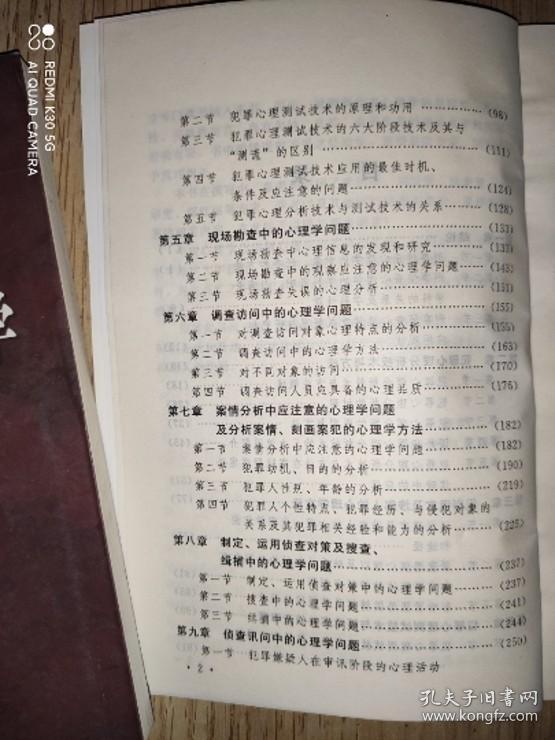 REDMI K30 5G
AI QUAD CAMERA
第二节 犯罪心理测试技术的原理和功用 …………… (98)
第三节 犯罪心理测试技术的六大阶段技术及其与
“测谎”的区别 …………………………… (111)
第四节 犯罪心理测试技术应用的最佳时机、
条件及应注意的问题 …………………… (124)
第五节 犯罪心理分析技术与测试技术的关系 ……… (128)
第五章 现场勘查中的心理学问题 ……………………… (133)
第一节 现场勘查中心理信息的发现和研究 ………… (133)
第二节 现场勘查中的观察应注意的心理学问题 …… (143)
第三节 现场勘查失误的心理分析 …………………… (151)
第六章 调查访问中的心理学问题 ……………………… (155)
第一节 对调查访问对象心理特点的分析 …………… (155)
第二节 调查访问中的心理学方法 …………………… (163)
第三节 对不同对象的访问 …………………………… (170)
第四节 调查访问人员应具备的心理品质 …………… (176)
第七章 案情分析中应注意的心理学问题
及分析案情、刻画案犯的心理学方法 ………… (182)
第一节 案情分析中应注意的心理学问题 …………… (182)
第二节 犯罪动机、目的的分析 ……………………… (190)
第三节 犯罪人性别、年龄的分析 …………………… (219)
第四节 犯罪人个性特点、犯罪经历、与侵犯对象的
关系及其犯罪相关经验和能力的分析 …… (225)
第八章 制定、运用侦查对策及搜查、
缉捕中的心理学问题 …………………………… (237)
第一节 制定、运用侦查对策中的心理学问题 ……… (237)
第二节 搜查中的心理学问题 ………………………… (241)
第三节 缉捕中的心理学问题 ………………………… (244)
第九章 侦查讯问中的心理学问题 ……………………… (250)
第一节 犯罪嫌疑人在审讯阶段的心理活动
· 2 ·
孔夫子旧书网
www.kongfz.com